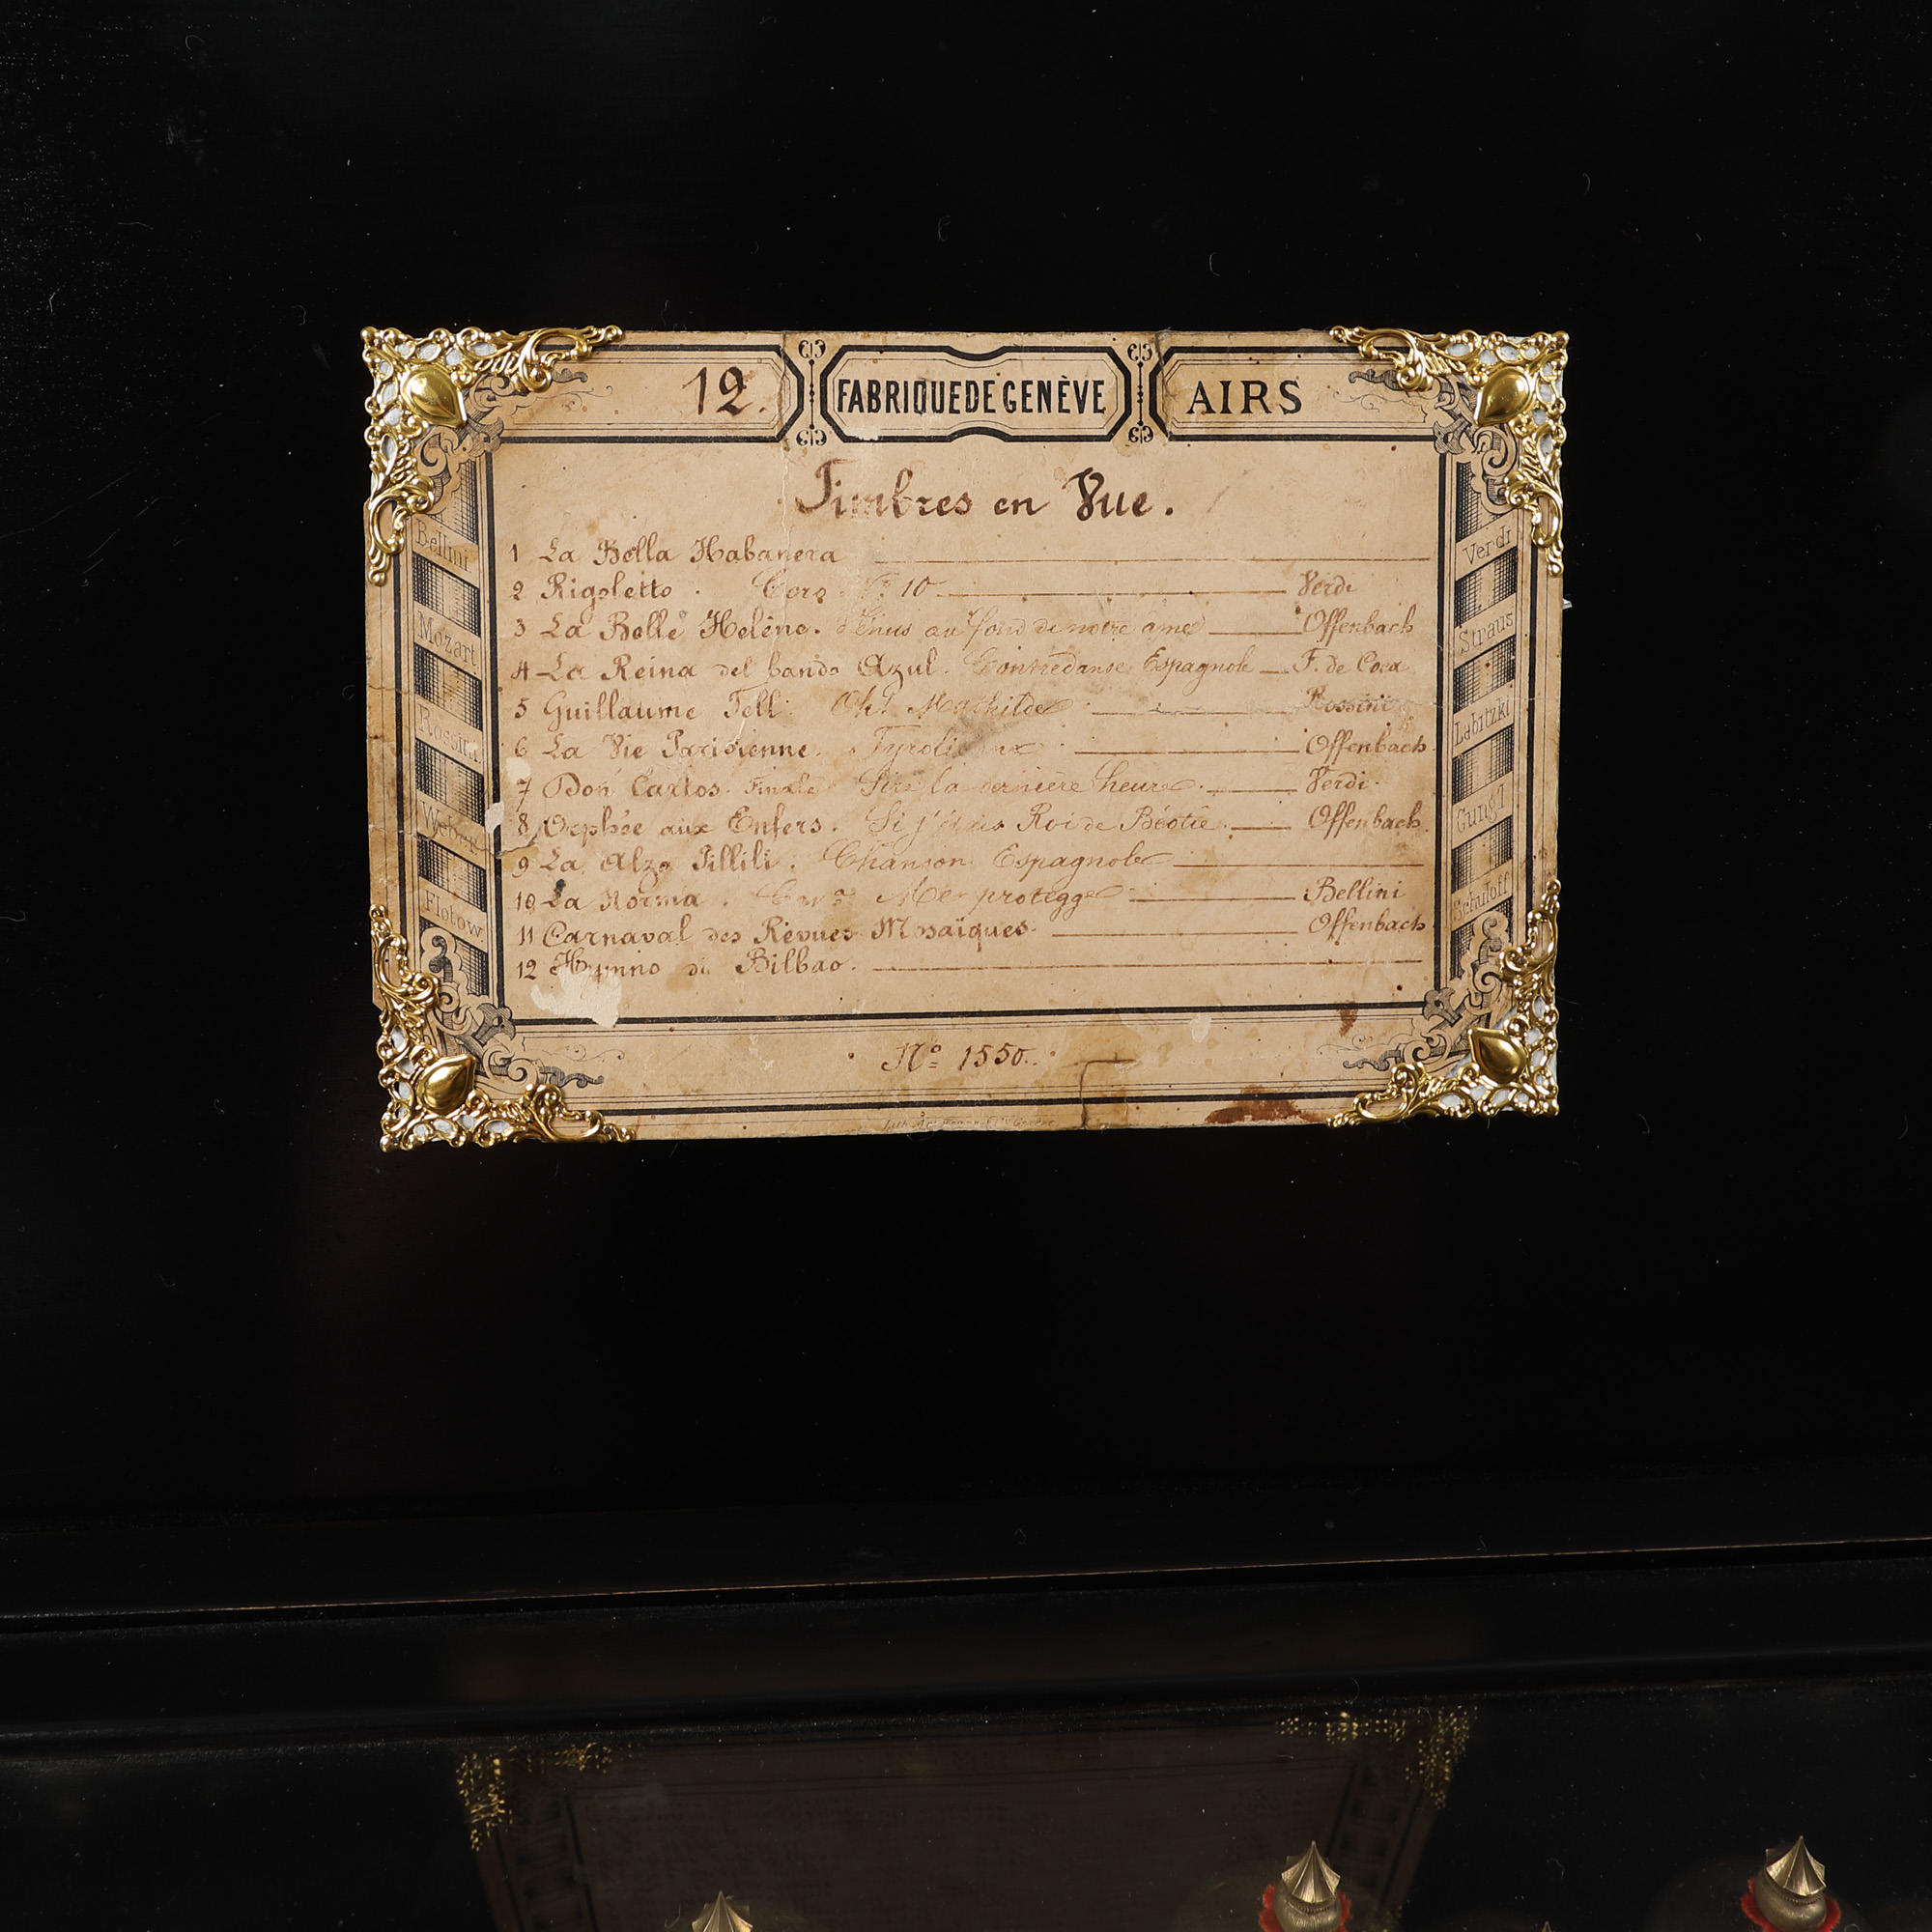 12. FABRIQUE DE GENÈVE AIRS
Timbres en Vue.
1 La Bella Habanera
2 Rigoletto. Nº 10 Verdi
3 La Belle Helène. Vénus au fond de notre âme Offenbach
4 La Reina del bando Azul. Contredanse Espagnole F. de Coca
5 Guillaume Tell. Oh! Mathilde Rossini
6 La Vie Parisienne. Tyrolienne Offenbach
7 Don Carlos. Finale la dernière heure. Verdi.
8 Orphée aux Enfers. Si j'étais Roi de Béotie. Offenbach
9 La Alza Pillili. Chanson Espagnole
10 La Norma. Me protegge Bellini
11 Carnaval des Révues Mosaïques. Offenbach
12 Hymno di Bilbao.
Nº 1550.
Bellini
Mozart
Rossini
Weber
Flotow
Verdi
Straus
Labitzki
Gung'l
Schuloff